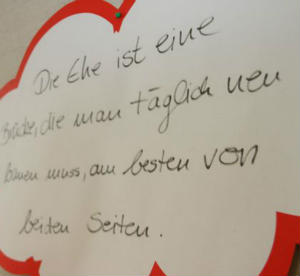 Die Ehe ist eine
Brücke, die man täglich neu
bauen muss, am besten von
beiden Seiten.